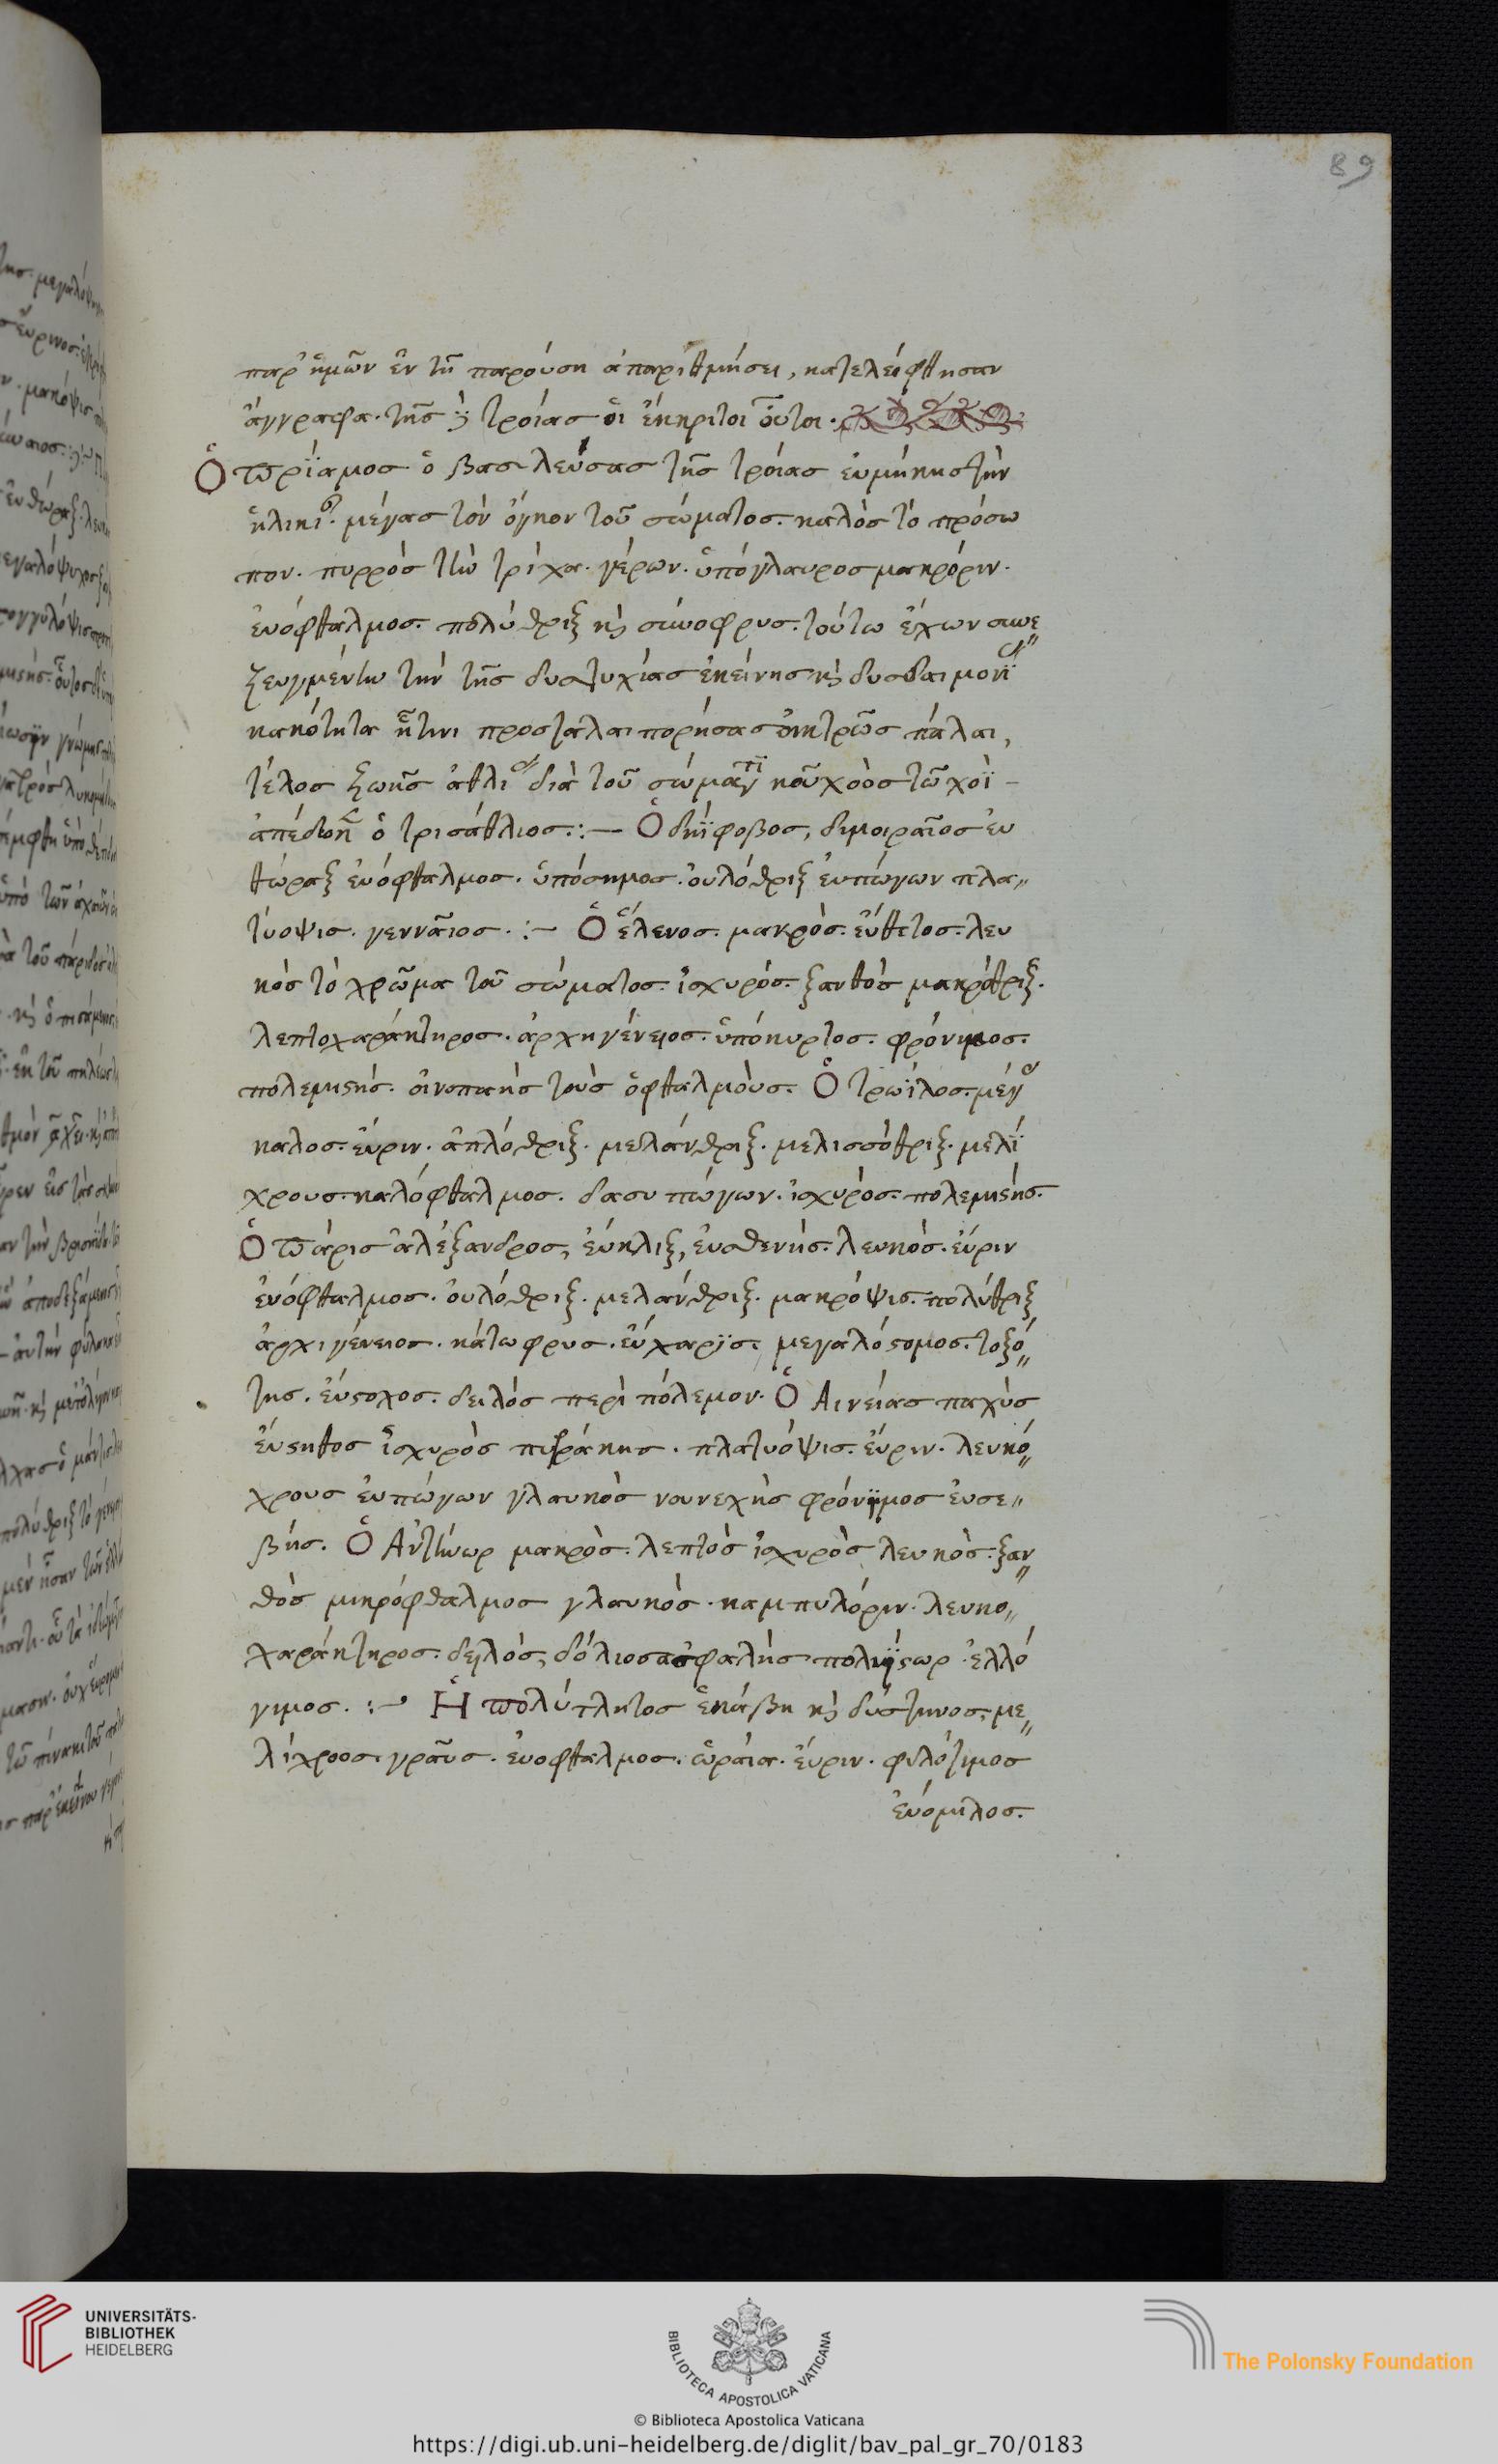 89
παρ' ἡμῶν ἐν τῆ παρούση ἀπαριθμήσει, κατελείφθησαν
ἄγγραφα. τῆς δὲ τροίας οἱ ἔκκριτοι οὗτοι.
Ὁ πρίαμος ὁ βασιλεύσας τῆς τροίας εὐμήκης τὴν
ἡλικί. μέγας τὸν ὄγκον τοῦ σώματος. καλὸς τὸ πρόσω
πον. πυρρὸς τὴν τρίχα. γέρων. ὑπόγλαυρος μακρόριν.
εὐόφθαλμος. πολύθριξ κὶ σύνοφρυς. τούτω ἔχων συνε
ζευγμένην τὴν τῆς δυστυχίας ἐκείνης κὶ δυσδαιμονί
κακότητα ἥτινι προσταλαιπορήσας οἰκτρῶς πάλαι,
τέλος ζωῆς ἀθλι διὰ τοῦ σώματ
ὁ τρισάθλιος:— Ὁ δηΐφοβος, διμοιραῖος εὐ
θώραξ εὐόφθαλμος. ὑπόσιμος. οὐλόθριξ εὐπώγων πλα
τύοψις. γενναῖος.:— Ὁ ἕλενος. μακρὸς. εὔθετος. λευ
κὸς τὸ χρῶμα τοῦ σώματος. ἰσχυρός. ξανθὸς μακρόθριξ.
λεπτοχαράκτηρος. ἀρχηγένειος. ὑπόκυρτος. φρόνιμος.
πολεμιϛής. οἰνοπαὴς τοὺς ὀφθαλμοὺς. Ὁ τρωΐλος. μέγ
καλος. εὔριν. ἁπλόθριξ. μελάνθριξ. μελισσόθριξ. μελί
χρους. καλόφθαλμος. δασυπώγων. ἰσχυρὸς. πολεμιϛής.
Ὁ πάρις ἀλέξανδρος, εὐῆλιξ, εὐσθενής. λευκὸς. εὔριν
εὐόφθαλμος. οὐλόθριξ. μελάνθριξ. μακρόψις. πολύθριξ
ἀρχιγένειος. κάτωφρυς. εὔχαρϊς. μεγαλόϛομος. τοξό
της. εὔϛοχος. δειλὸς περὶ πόλεμον. Ὁ Αινείας παχὺς
εὔϛηθος ἰσχυρὸς πυρράκης. πλατυόψις. εὔριν. λευκό
χρους εὐπώγων γλαυκὸς νουνεχὴς φρόνιμος εὐσε
βής. Ὁ Ἀντήνωρ μακρὸς. λεπτὸς ἰσχυρὸς λευκὸς. ξαν
θὸς μικρόφθαλμος γλαυκὸς. καμπυλόριν. λευκο
χαράκτηρος. δειλὸς, δόλιος ἀσφαλὴς πολυΐϛωρ ἐλλό
γιμος.:— Ἡ πολύτλητος ἑκάβη κὶ δύστηνος. με
λίχροος. γραῦς. εὐοφθαλμος. ὡραία. εὔριν. φιλότιμος
εὐόμιλος.
UNIVERSITÄTS-
BIBLIOTHEK
HEIDELBERG
BIBLIOTECA APOSTOLICA VATICANA
The Polonsky Foundation
© Biblioteca Apostolica Vaticana
https://digi.ub.uni-heidelberg.de/diglit/bav_pal_gr_70/0183